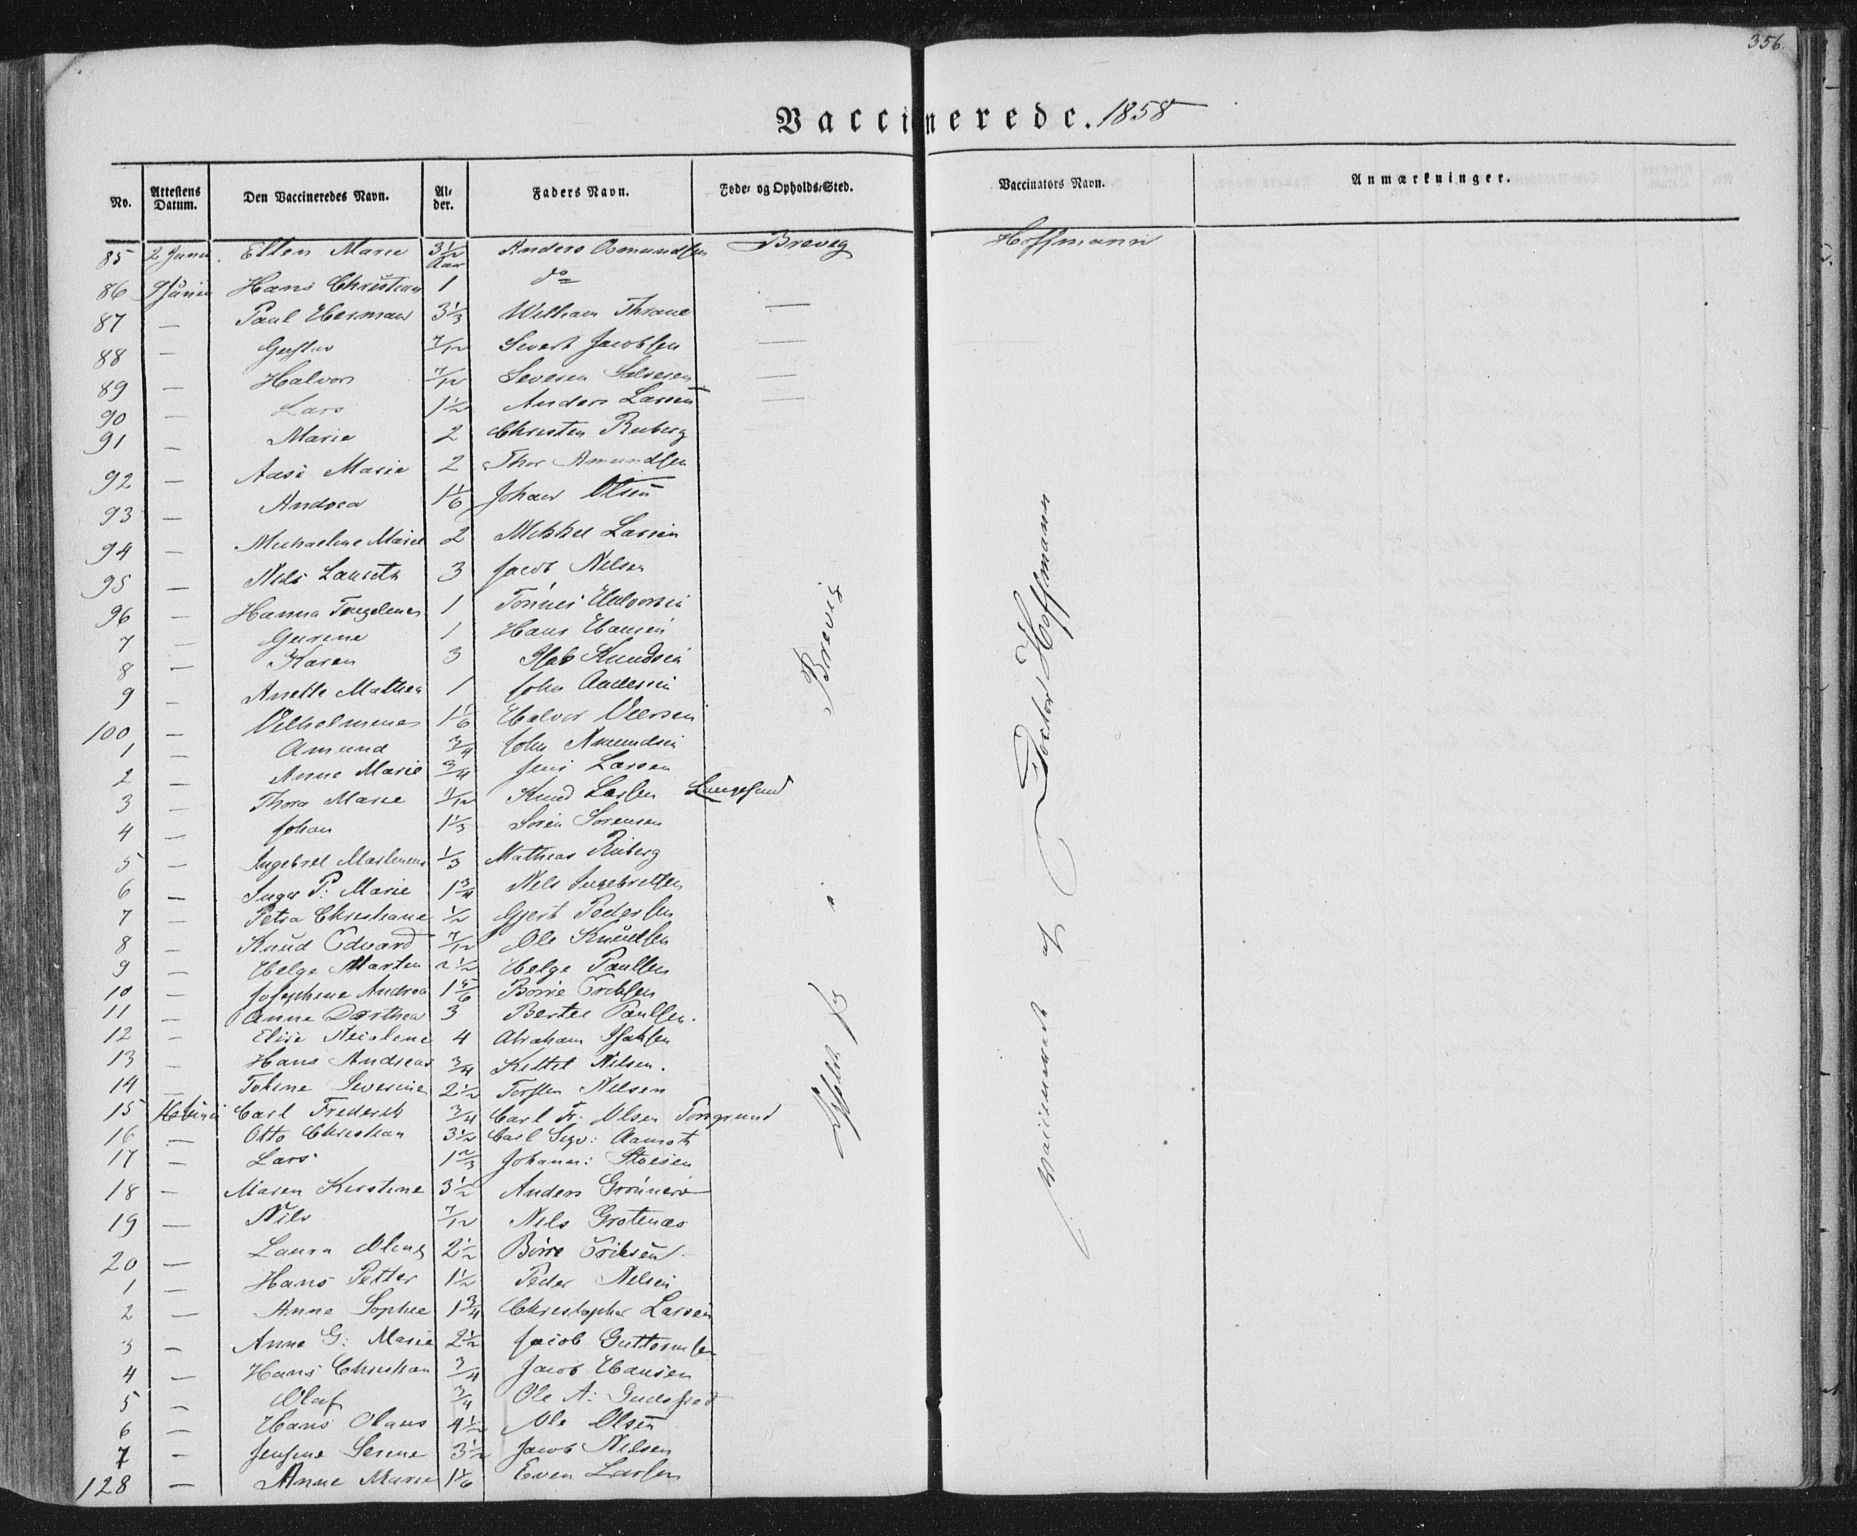 356.
Vaccinerede. 1858
No. Attestens Datum. Den Vaccineredes Navn. Al- der. Faders Navn. Føde- og Opholds-Sted. Vaccinators Navn. Anmærkninger.
85 2 Juni Ellen Marie 3½ Aar Anders Osmundsen Brevig Hoffmann
86 9 Juni Hans Christian 1 do
87 — Paul Herman 3⅓ William Thrane —
88 — Gustav 7/12 Sivert Jacobsen —
89 — Halvor 7/12 —
90 — Lars 1½ Anders Larsen —
91 — Marie 2 Christen Ruberg
92 — Aase Marie 2 Thor Amundsen
93 — Andrea 1⅙ Johan Olsen
94 — Michaeline Marie 2 Mikkel Larsen
95 — Nils Lauritz 3 Jacob Nilsen
96 — Hanna 1 Tönnes Halvorsen
7 — Gurine 1 Hans Hansen
8 — Karen 3 Knudsen
9 — Anette Mathea 1 John Andersen
100 — Vilhelmine 1⅙ Halvor
1 — Amund ¾ John Amundsen
2 — Anne Marie ¾ Jens Larsen
3 — Thora Marie 11/12 Knud Larsen Langesund
4 — Johan 1⅓ Sören Sorensen
5 — Ingebret ⅓ Mathias Ruberg
6 — Inger P: Marie 1¾ Nils Ingebretsen
7 — Petra Christiane ½ Gjert Pedersen
8 — Knud Edvard 7/12 Ole Knudsen
9 — Helge Marten 2½ Helge Paulsen
10 — Josephine Andrea 1⅚ Börre Eriksen
11 — Anne Dorthea 3 Bertel Paulsen.
12 — Elise Nicoline 4 Abraham Isaksen
13 — Hans Andreas ¾ Kittel Nilsen.
14 — Tobine Severine 2½ Torsten Nilsen
15 Juni Carl Frederik ¾ Carl Fr. Olsen Porsgrund
16 — Otto Christian 3½ Carl Sigv:
17 — Lars 1⅔ Johann:
18 — Maren Kirstine 3½ Anders
19 — Nils 7/12 Nils Grotnæs
20 — Laura 2½ Börre Eriksen
1 — Hans Petter 1½ Peder Nilsen
2 — Anne Sophie 1¾ Christopher Larsen
3 — Anne G: Marie 2½ Jacob Guttormsen
4 — Hans Christian ¾ Jacob Hansen
5 — Olaf ¾ Ole A:
6 — Hans Olaus 4½ Ole Olsen
7 — Jensine Serine 3½ Jacob Nilsen
128 — Anne Marie 1⅙ Even Larsen
i Brevig
Vaccinerede af Doctor Hoffmann